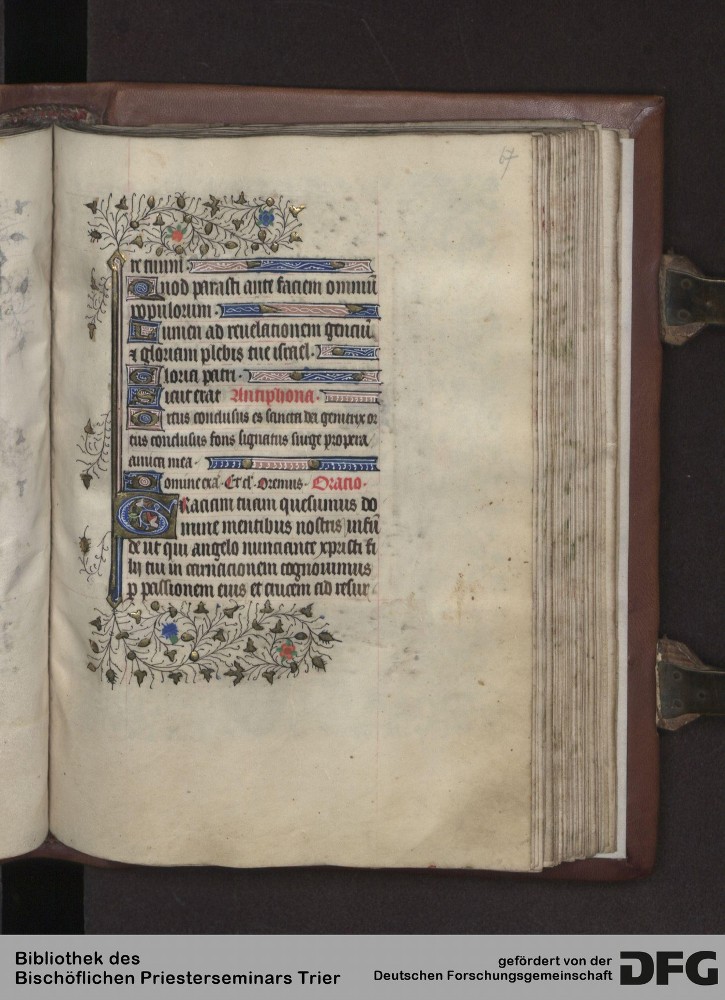 67
re tuum
Quod parasti ante faciem omniũ
populorum.
Lumen ad reuelationem genciũ
⁊ gloriam plebis tue israel.
Gloria patri.
Sicut erat Antiphona.
Ortus conclusus es sancta dei genitrix or
tus conclusus fons signatus surge propera
amica mea.
Domine exa. Et cl. Oremus. Oracio.
Graciam tuam quesumus do
mine mentibus nostris infũ
de ut qui angelo nunciante xpristi fi
lij tui incarnacionem cognouimus
p passionem eius et crucem ad resur
Bibliothek des
Bischöflichen Priesterseminars Trier
gefördert von der
Deutschen Forschungsgemeinschaft
DFG